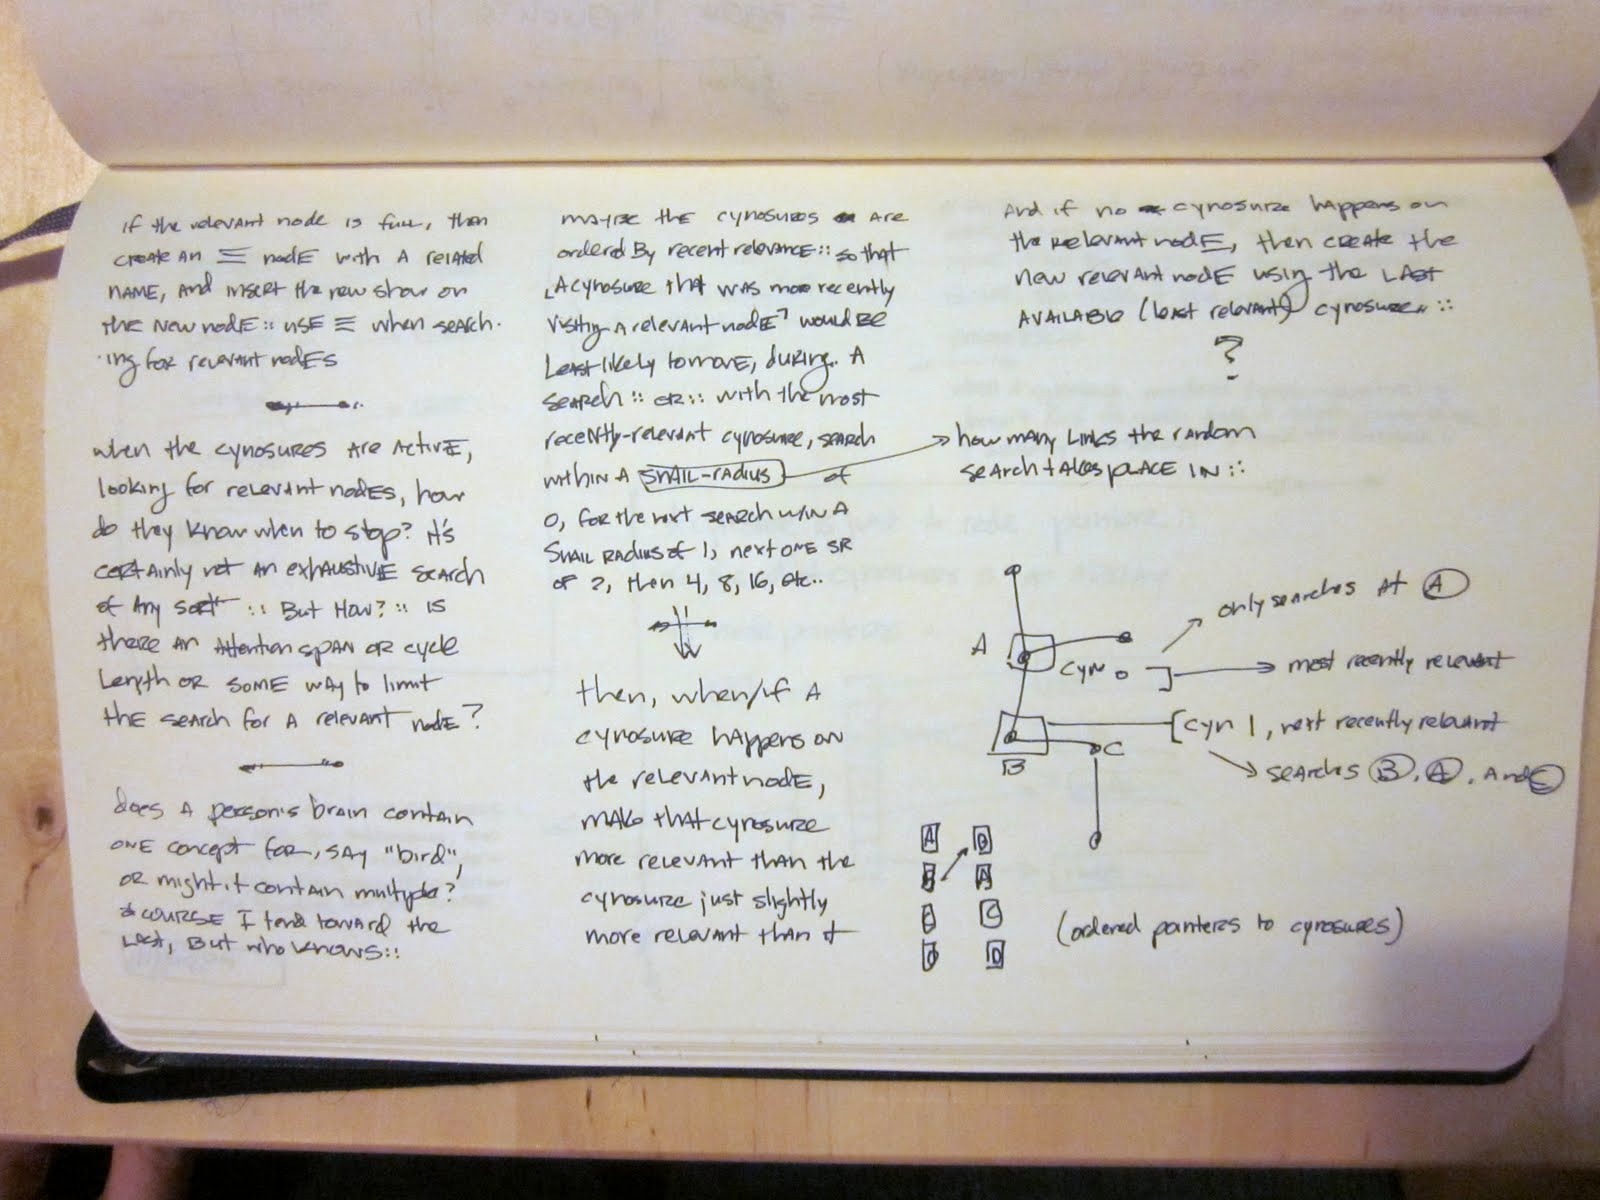 if the relevant node is full, then
create an Ξ node with a related
name, and insert the new show on
the new node :: use Ξ when search-
-ing for relevant nodes
when the cynosures are active,
looking for relevant nodes, how
do they know when to stop? it's
certainly not an exhaustive search
of any sort :: But How? :: is
there an attention span or cycle
length or some way to limit
the search for a relevant node?
does a person's brain contain
one concept for, say "bird",
or might it contain multiple?
course I tend toward the
last, but who knows ::
maybe the cynosures are
ordered by recent relevance :: so that
a cynosure that was more recently
visiting a relevant node would be
least likely to move, during a
search :: or :: with the most
recently-relevant cynosure, search
within a snail-radius of
0, for the next search w/in a
snail radius of 1, next one SR
of 2, then 4, 8, 16, etc..
then, when/if a
cynosure happens on
the relevant node,
make that cynosure
more relevant than the
cynosure just slightly
more relevant than it
And if no cynosure happens on
the relevant node, then create the
new relevant node using the last
available (least relevant) cynosure ::
?
how many links the random
search takes place in ::
only searches at A
A
cyn 0
most recently relevant
cyn 1, next recently relevant
B
C
searches B, A, and C
A B
B A
C C
D D
(ordered pointers to cynosures)